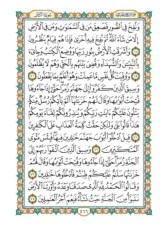 وَنُفِخَ فِي ٱلصُّورِ فَصَعِقَ مَن فِي ٱلسَّمَٰوَٰتِ وَمَن فِي ٱلْأَرْضِ
إِلَّا مَن شَآءَ ٱللَّهُ ثُمَّ نُفِخَ فِيهِ أُخْرَىٰ فَإِذَا هُمْ قِيَامٌ يَنظُرُونَ
وَأَشْرَقَتِ ٱلْأَرْضُ بِنُورِ رَبِّهَا وَوُضِعَ ٱلْكِتَٰبُ وَجِاْيٓءَ
بِٱلنَّبِيِّـۧنَ وَٱلشُّهَدَآءِ وَقُضِيَ بَيْنَهُم بِٱلْحَقِّ وَهُمْ لَا يُظْلَمُونَ
وَوُفِّيَتْ كُلُّ نَفْسٍ مَّا عَمِلَتْ وَهُوَ أَعْلَمُ بِمَا يَفْعَلُونَ
وَسِيقَ ٱلَّذِينَ كَفَرُوٓاْ إِلَىٰ جَهَنَّمَ زُمَرًا حَتَّىٰٓ إِذَا جَآءُوهَا فُتِحَتْ
أَبْوَٰبُهَا وَقَالَ لَهُمْ خَزَنَتُهَآ أَلَمْ يَأْتِكُمْ رُسُلٌ مِّنكُمْ يَتْلُونَ
عَلَيْكُمْ ءَايَٰتِ رَبِّكُمْ وَيُنذِرُونَكُمْ لِقَآءَ يَوْمِكُمْ
هَٰذَا قَالُواْ بَلَىٰ وَلَٰكِنْ حَقَّتْ كَلِمَةُ ٱلْعَذَابِ عَلَى ٱلْكَٰفِرِينَ
قِيلَ ٱدْخُلُوٓاْ أَبْوَٰبَ جَهَنَّمَ خَٰلِدِينَ فِيهَا فَبِئْسَ مَثْوَى
ٱلْمُتَكَبِّرِينَ وَسِيقَ ٱلَّذِينَ ٱتَّقَوْاْ رَبَّهُمْ إِلَى
ٱلْجَنَّةِ زُمَرًا حَتَّىٰٓ إِذَا جَآءُوهَا وَفُتِحَتْ أَبْوَٰبُهَا وَقَالَ لَهُمْ
خَزَنَتُهَا سَلَٰمٌ عَلَيْكُمْ طِبْتُمْ فَٱدْخُلُوهَا خَٰلِدِينَ
وَقَالُواْ ٱلْحَمْدُ لِلَّهِ ٱلَّذِي صَدَقَنَا وَعْدَهُۥ وَأَوْرَثَنَا ٱلْأَرْضَ
نَتَبَوَّأُ مِنَ ٱلْجَنَّةِ حَيْثُ نَشَآءُ فَنِعْمَ أَجْرُ ٱلْعَٰمِلِينَ
٤٦٦